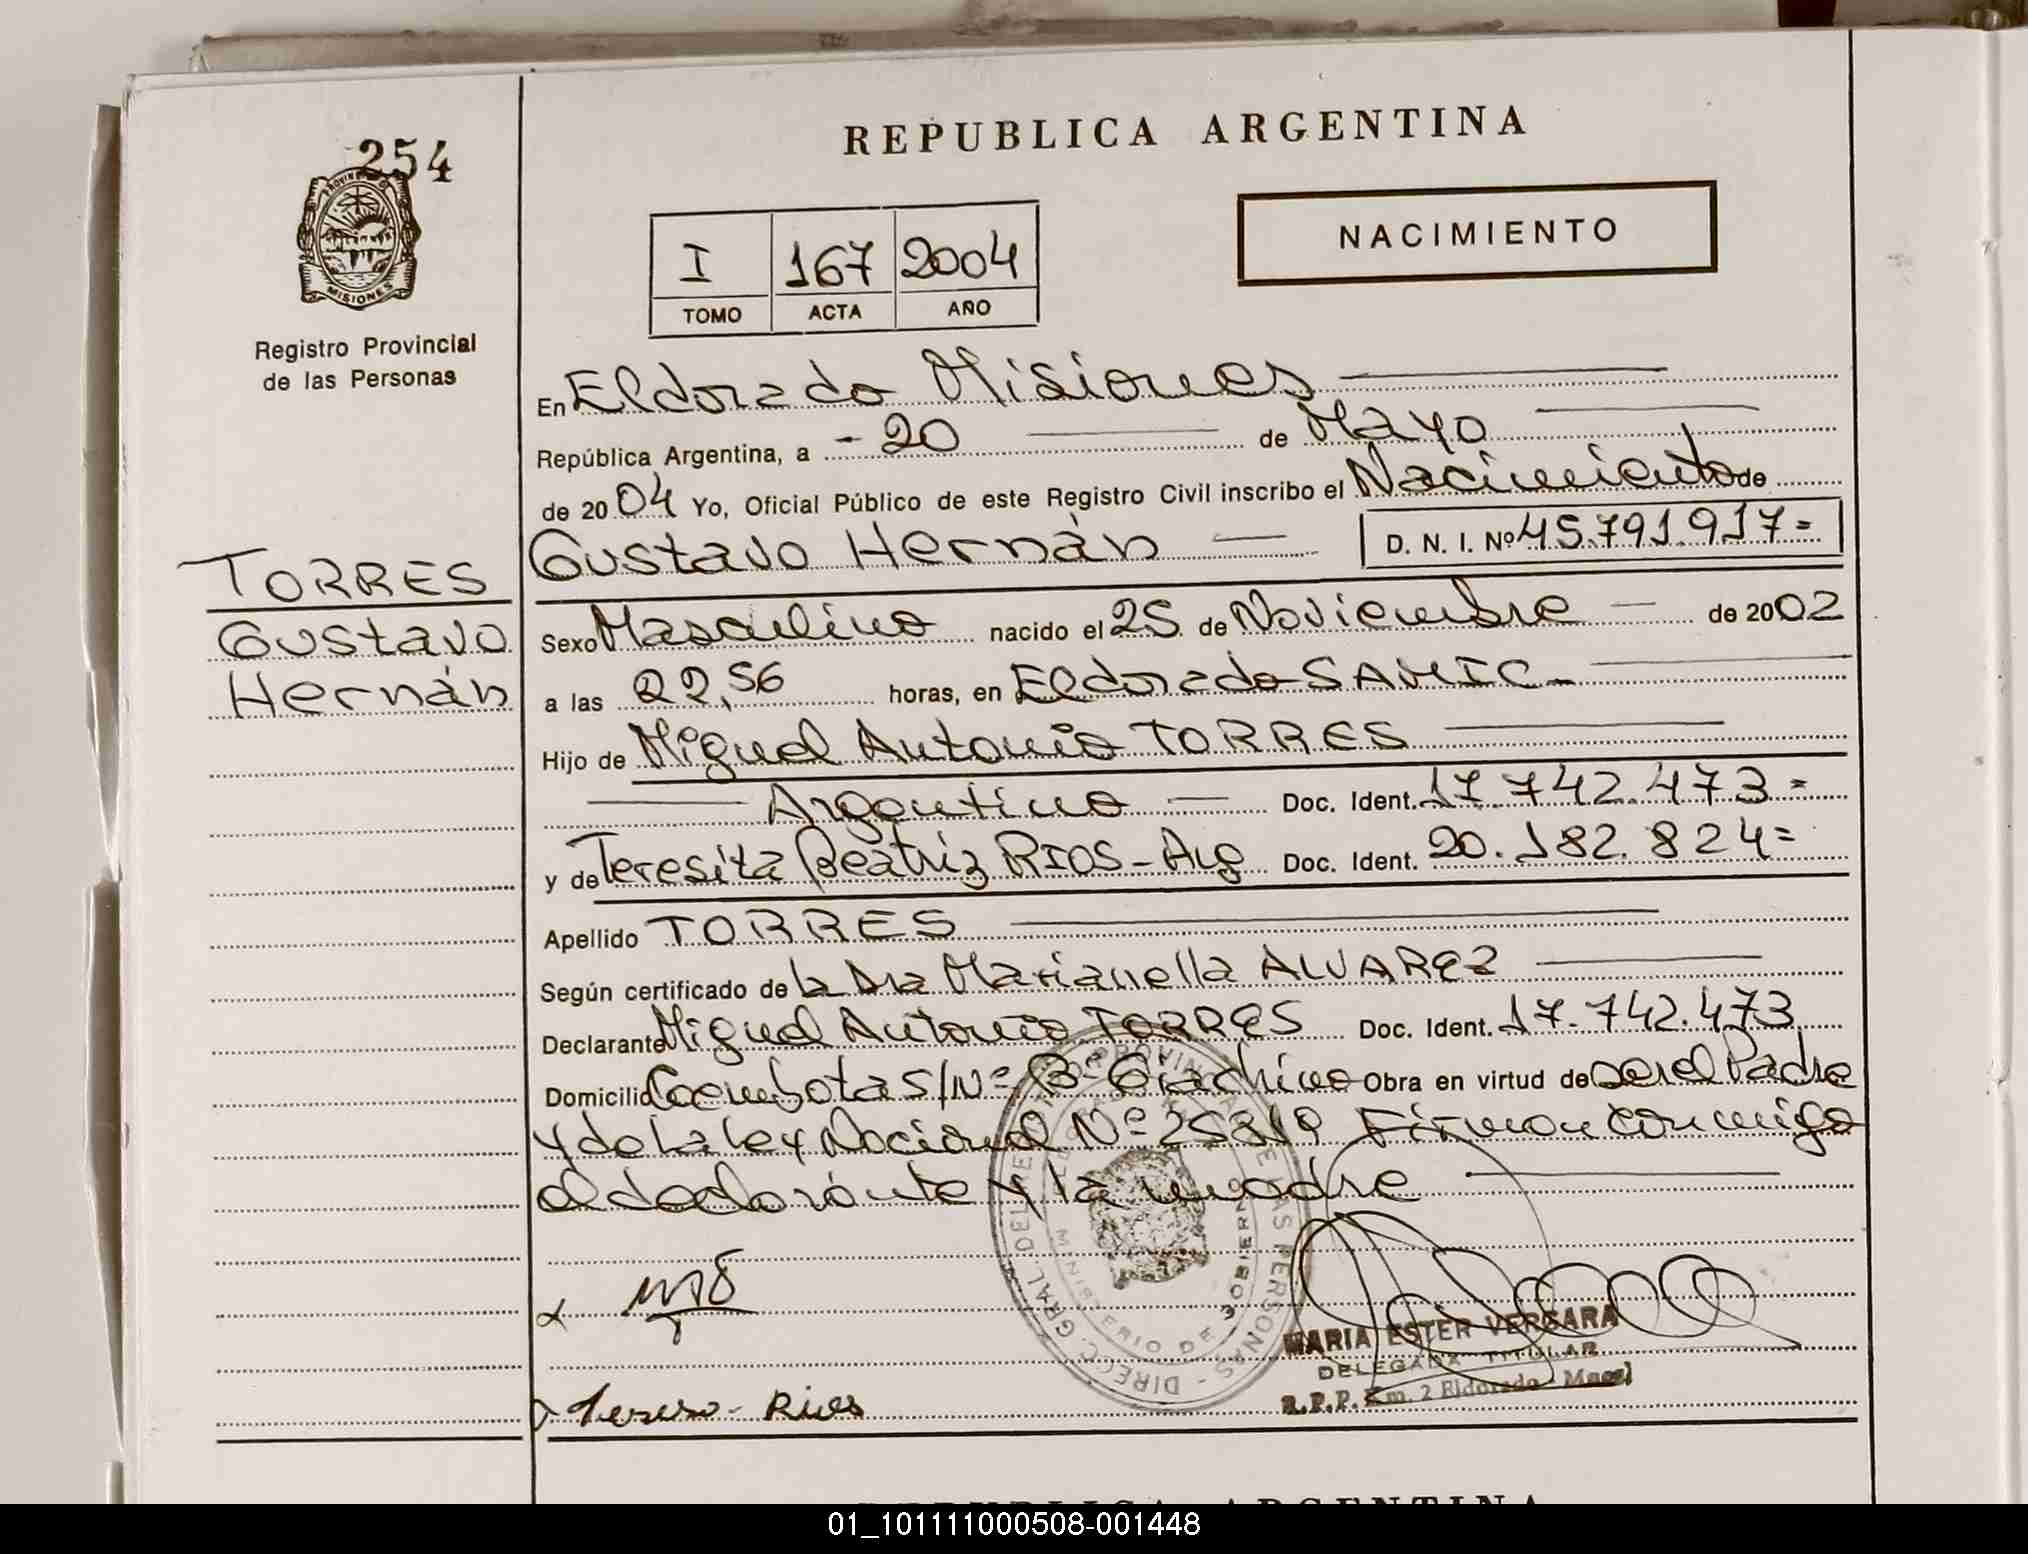 254
PROVINCIA DE
MISIONES
Registro Provincial
de las Personas
TORRES
Gustavo
Hernán
REPUBLICA ARGENTINA
NACIMIENTO
I 167 2004
TOMO ACTA AÑO
En Eldorado Misiones
República Argentina, a - 20 de Mayo
de 2004 Yo, Oficial Público de este Registro Civil inscribo el Nacimiento de
Gustavo Hernán D. N. I. Nº 45.791.917=
Sexo Masculino nacido el 25 de Noviembre de 2002
a las 22,56 horas, en Eldorado SAMIC-
Hijo de Miguel Antonio TORRES
Argentino Doc. Ident. 17.742.473=
y de Teresita Beatriz RIOS - Arg Doc. Ident. 20.182.824=
Apellido TORRES
Según certificado de la Dra Marianella ALVAREZ
Declarante Miguel Antonio TORRES Doc. Ident. 17.742.473
Domicilio S/Nº Bº Obra en virtud de ser el Padre
y de la Ley Nacional Nº 25819 Firman conmigo
el declarante y la madre
Rios
DIREC. GRAL. DEL REG. PROVINCIAL DE LAS PERSONAS
MINISTERIO DE GOBIERNO
MARIA ESTER VERGARA
DELEGADA TITULAR
R.P.P. Km. 2 Eldorado
REPUBLICA ARGENTINA
01_101111000508-001448